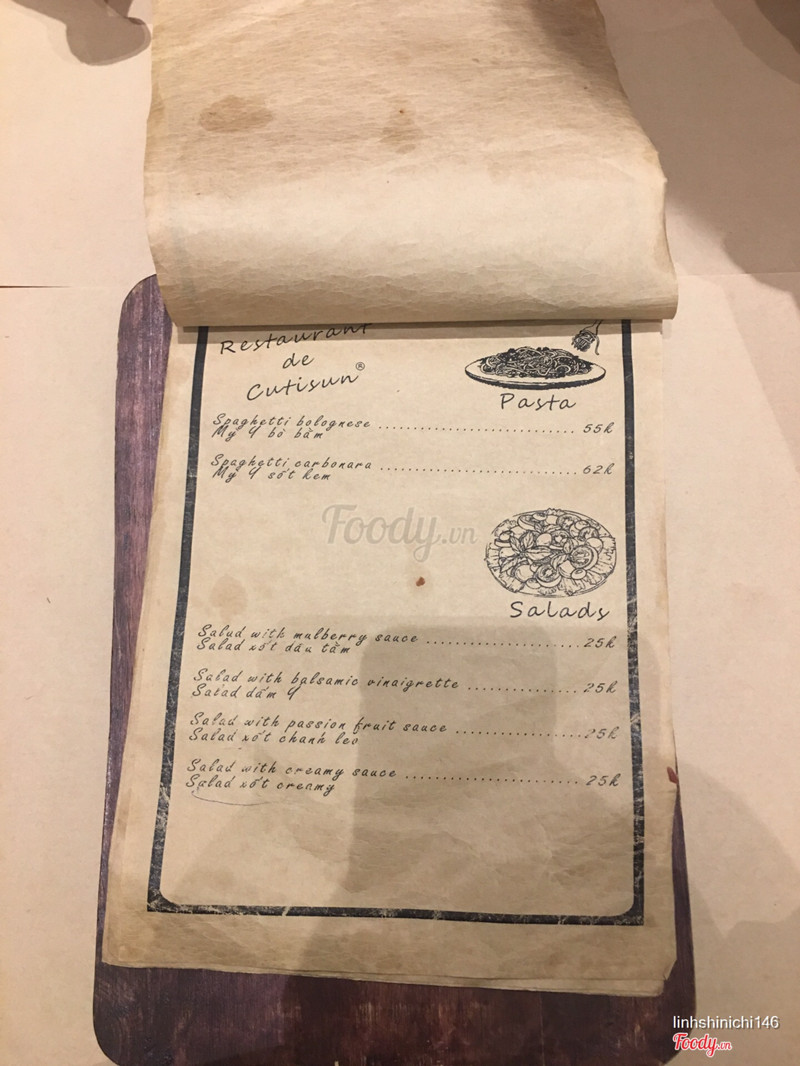 Restaurant
de
Cutisun®
Pasta
Spaghetti bolognese .......................... 55k
Mỳ Ý bò bằm
Spaghetti carbonara .......................... 62k
Mỳ Ý sốt kem
Foody.vn
Salads
Salad with mulberry sauce .................... 25k
Salad xốt dâu tằm
Salad with balsamic vinaigrette ............... 25k
Salad dấm Ý
Salad with passion fruit sauce ................ 25k
Salad xốt chanh leo
Salad with creamy sauce ....................... 25k
Salad xốt creamy
linhshinichi146
Foody.vn